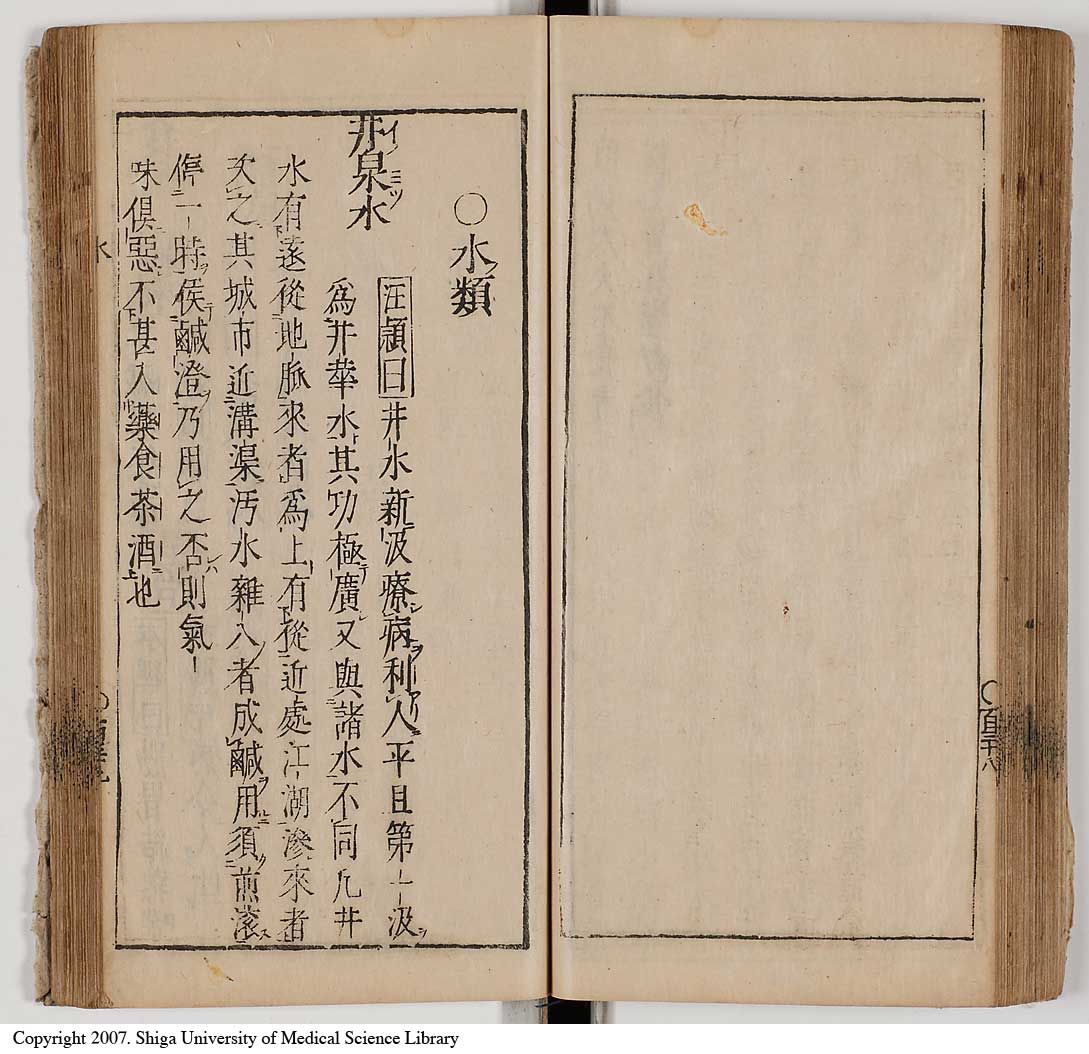 ○水類
井泉水
汪頴曰井水新汲療病利人平旦第一汲
爲井華水其功極廣又與諸水不同凡井
水有遠從地脈來者爲上有從近處江湖滲來者
次之其城市近溝渠汚水雜入者成鹹用須煎滚
停一時候鹹澄乃用之否則氣
味俱惡不甚入藥食茶酒也
水
Copyright 2007. Shiga University of Medical Science Library